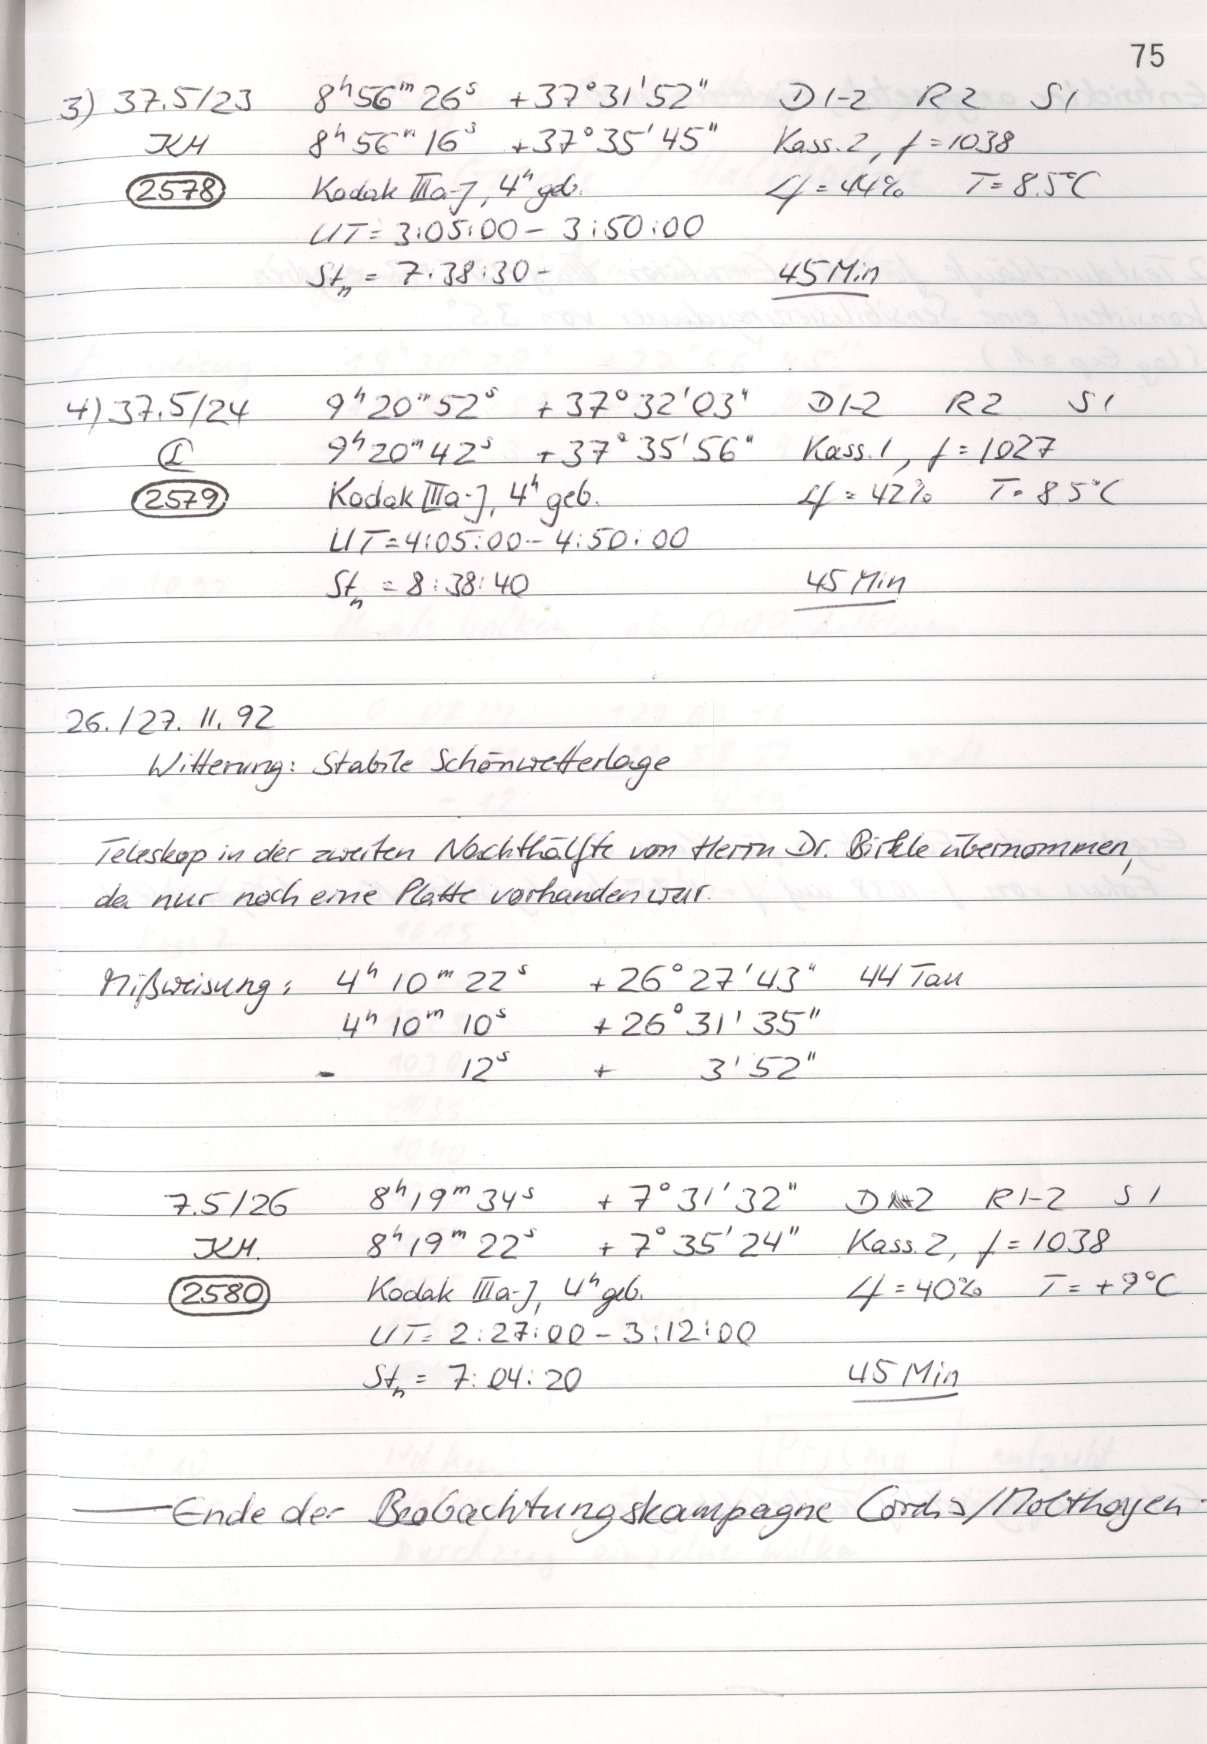 75
3) 37.5/23 8ʰ56ᵐ26ˢ +37°31'52" D1-2 R2 S1
KM 8ʰ56ᵐ16ˢ +37°35'45" Kass. 2, f=1038
2578 Kodak IIIa-J, 4ʰ geb. LF=44% T=8.5°C
UT=3:05:00 - 3:50:00
Stₙ = 7:38:30 - 45 Min
4) 37.5/24 9ʰ20ᵐ52ˢ +37°32'03" D1-2 R2 S1
9ʰ20ᵐ42ˢ +37°35'56" Kass. 1, f=1027
2579 Kodak IIIa-J, 4ʰ geb. LF=42% T=8.5°C
UT=4:05:00 - 4:50:00
Stₙ = 8:38:40 45 Min
26./27. 11. 92
Witterung: Stabile Schönwetterlage
Teleskop in der zweiten Nachthälfte von Herrn Dr. Birkle übernommen,
da nur noch eine Platte vorhanden war.
Mißweisung: 4ʰ10ᵐ22ˢ +26°27'43" 44 Tau
4ʰ10ᵐ10ˢ +26°31'35"
- 12ˢ + 3'52"
7.5/26 8ʰ19ᵐ34ˢ +7°31'32" D 2 R1-2 S1
KM. 8ʰ19ᵐ22ˢ +7°35'24" Kass. 2, f=1038
2580 Kodak IIIa-J, 4ʰ geb. LF=40% T=+9°C
UT=2:27:00 - 3:12:00
Stₙ = 7:04:20 45 Min
— Ende der Beobachtungskampagne